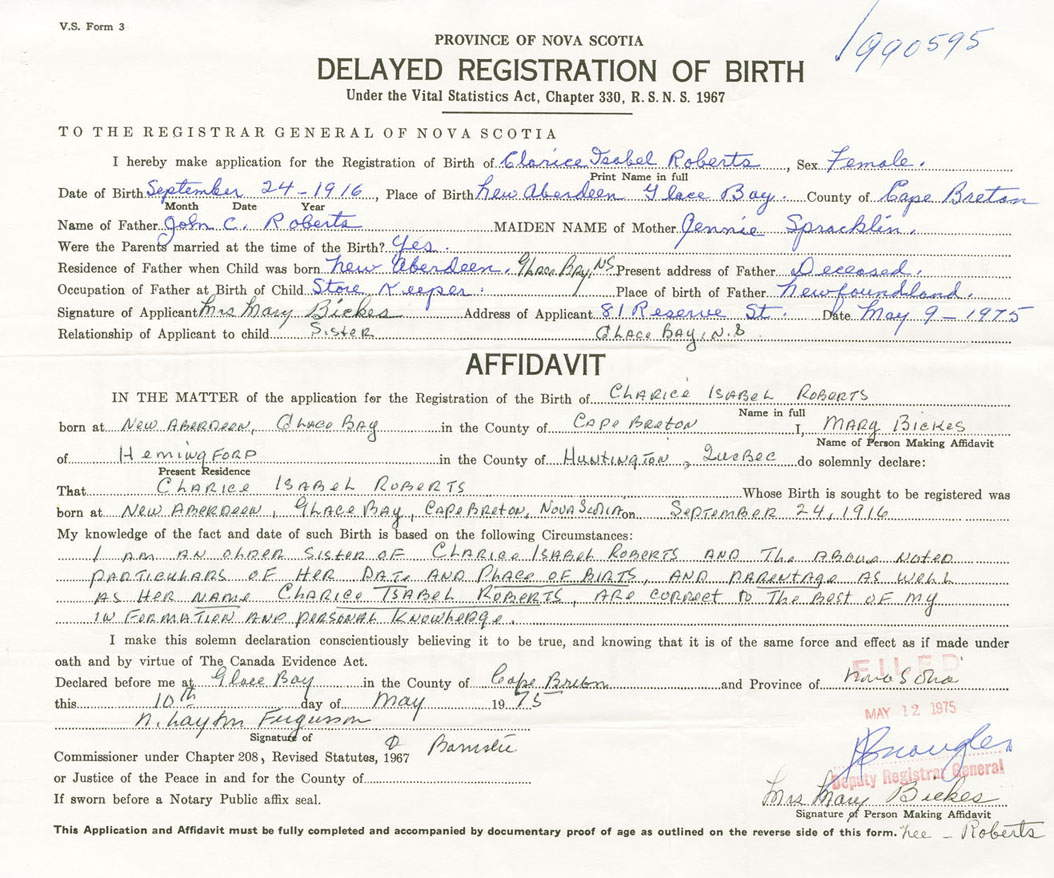 V.S. Form 3
1990595
PROVINCE OF NOVA SCOTIA
DELAYED REGISTRATION OF BIRTH
Under the Vital Statistics Act, Chapter 330, R. S. N. S. 1967
TO THE REGISTRAR GENERAL OF NOVA SCOTIA
I hereby make application for the Registration of Birth of Clarice Isabel Roberts, Sex Female.
Print Name in full
Date of Birth September 24-1916, Place of Birth New Aberdeen Glace Bay. County of Cape Breton
Month Date Year
Name of Father John C. Roberts MAIDEN NAME of Mother Jennie Spracklin.
Were the Parents married at the time of the Birth? Yes.
Residence of Father when Child was born New Aberdeen, Glace Bay, NS Present address of Father Deceased.
Occupation of Father at Birth of Child Store Keeper. Place of birth of Father Newfoundland.
Signature of Applicant Mrs Mary Bickes Address of Applicant 81 Reserve St. Date May 9-1975
Relationship of Applicant to child Sister Glace Bay, N.S
AFFIDAVIT
IN THE MATTER of the application for the Registration of the Birth of Clarice Isabel Roberts
Name in full
born at New Aberdeen, Glace Bay in the County of Cape Breton I, Mary Bickes
Name of Person Making Affidavit
of Hemingford in the County of Huntington, Quebec do solemnly declare:
Present Residence
That Clarice Isabel Roberts Whose Birth is sought to be registered was
born at New Aberdeen, Glace Bay, Cape Breton, Nova Scotia on September 24, 1916
My knowledge of the fact and date of such Birth is based on the following Circumstances:
I am an older sister of Clarice Isabel Roberts and the above noted
particulars of her date and place of birth, and parentage as well
as her name Clarice Isabel Roberts, are correct to the best of my
information and personal knowledge.
I make this solemn declaration conscientiously believing it to be true, and knowing that it is of the same force and effect as if made under
oath and by virtue of The Canada Evidence Act.
FILED
Declared before me at Glace Bay in the County of Cape Breton and Province of Nova Scotia
this 10th day of May 1975
MAY 12 1975
N. Layton Fergusson
Signature of
A Barrister
Commissioner under Chapter 208, Revised Statutes, 1967
or Justice of the Peace in and for the County of
Deputy Registrar General
If sworn before a Notary Public affix seal.
Mrs Mary Bickes
Signature of Person Making Affidavit
This Application and Affidavit must be fully completed and accompanied by documentary proof of age as outlined on the reverse side of this form. nee - Roberts